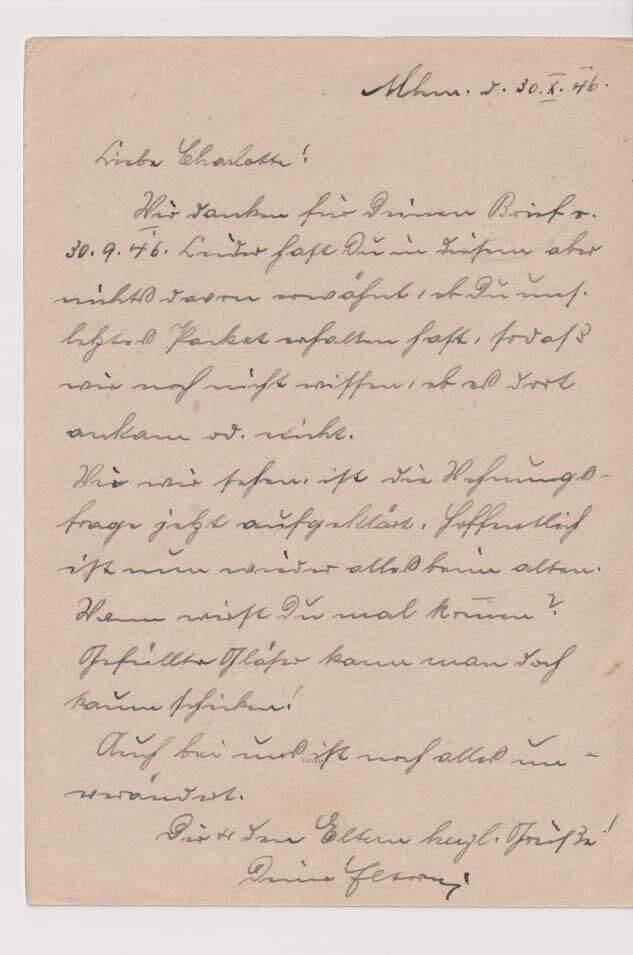 Mhm. d. 30. X. 46.
Liebe Charlotte!
Wir danken für Deinen Brief v.
30. 9. 46. Leider hast Du in diesem aber
nichts davon erwähnt, ob Du uns.
letztes Packet erhalten hast, sodaß
wir noch nicht wissen, ob es dort
ankam od. nicht.
Wie wir sehen, ist die Wohnungs-
frage jetzt aufgeklärt. Hoffentlich
ist nun wieder alles beim alten.
Wann wirst Du mal kom̅en?
Gefüllte Gläser kann man doch
kaum schicken!
Auch bei uns ist noch alles un-
verändert.
Dir & den Eltern herzl. Grüße!
Deine Eltern